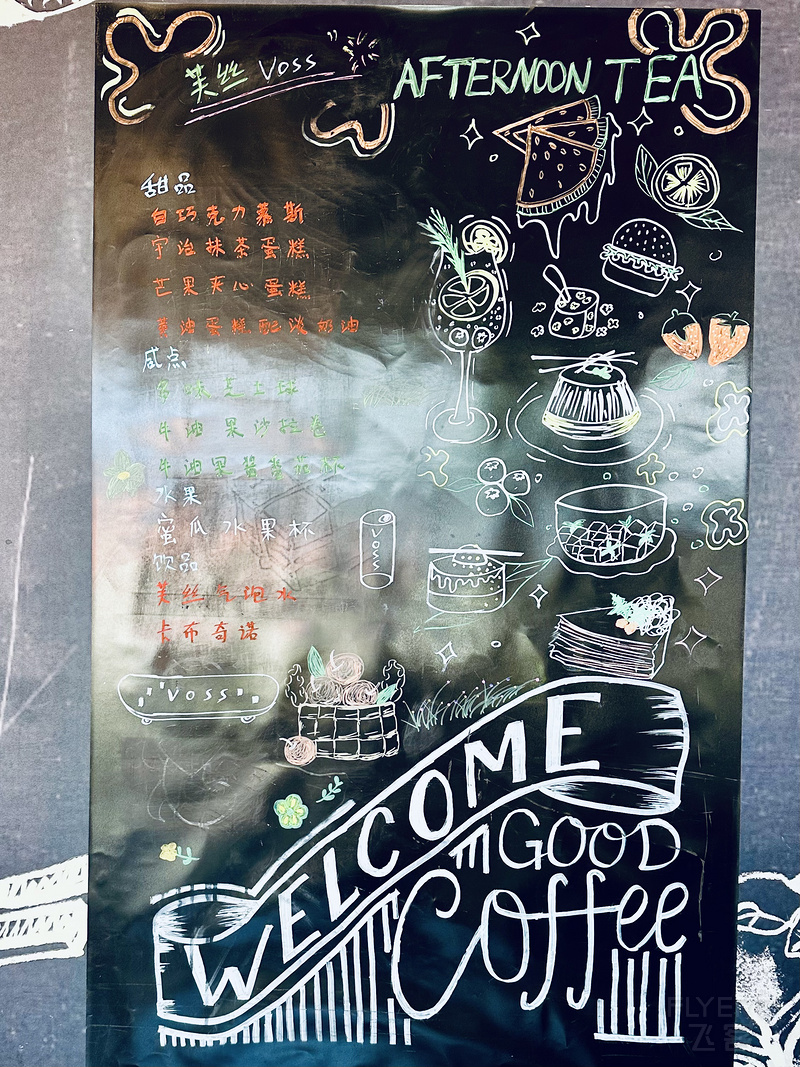 芙丝 VOSS
AFTERNOON TEA
甜品
白巧克力慕斯
宇治抹茶蛋糕
芒果夹心蛋糕
黄油蛋糕配淡奶油
咸点
芝士球
牛油果沙拉卷
牛油果酱番茄杯
水果
蜜瓜水果杯
饮品
芙丝气泡水
卡布奇诺
VOSS
VOSS
WELCOME
GOOD
Coffee
FLYE
飞客